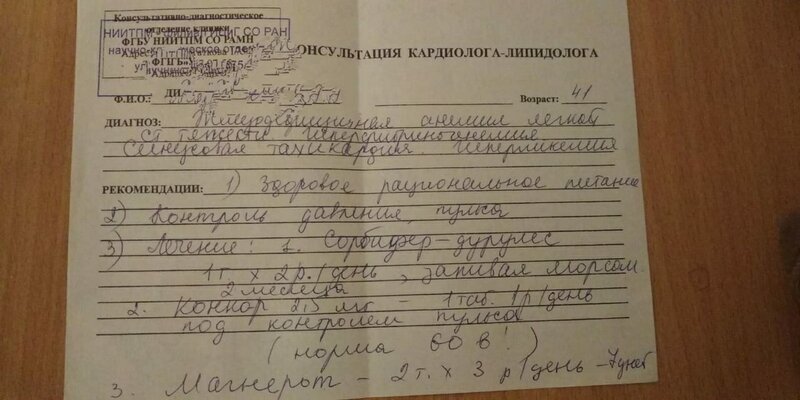 Консультативно-диагностическое
отделение клиники
ФГБУ НИИТПМ СО РАМН
НИИТПМ - СО РАН
КОНСУЛЬТАЦИЯ КАРДИОЛОГА-ЛИПИДОЛОГА
Ф.И.О.: Возраст: 41
ДИАГНОЗ: анемия легкой
ст тяжести
Синусовая тахикардия
РЕКОМЕНДАЦИИ: 1) Здоровое рациональное питание
2) Контроль давления, пульса
3) Лечение: 1. Сорбифер-дурулес
1т. х 2р./день, запивая морсом
2 месяца
2. Конкор 2,5 мг - 1 таб. 1р/день
под контролем пульса
(норма 60 в 1')
3. Магнерот - 2т. х 3 р/день - 7 дней